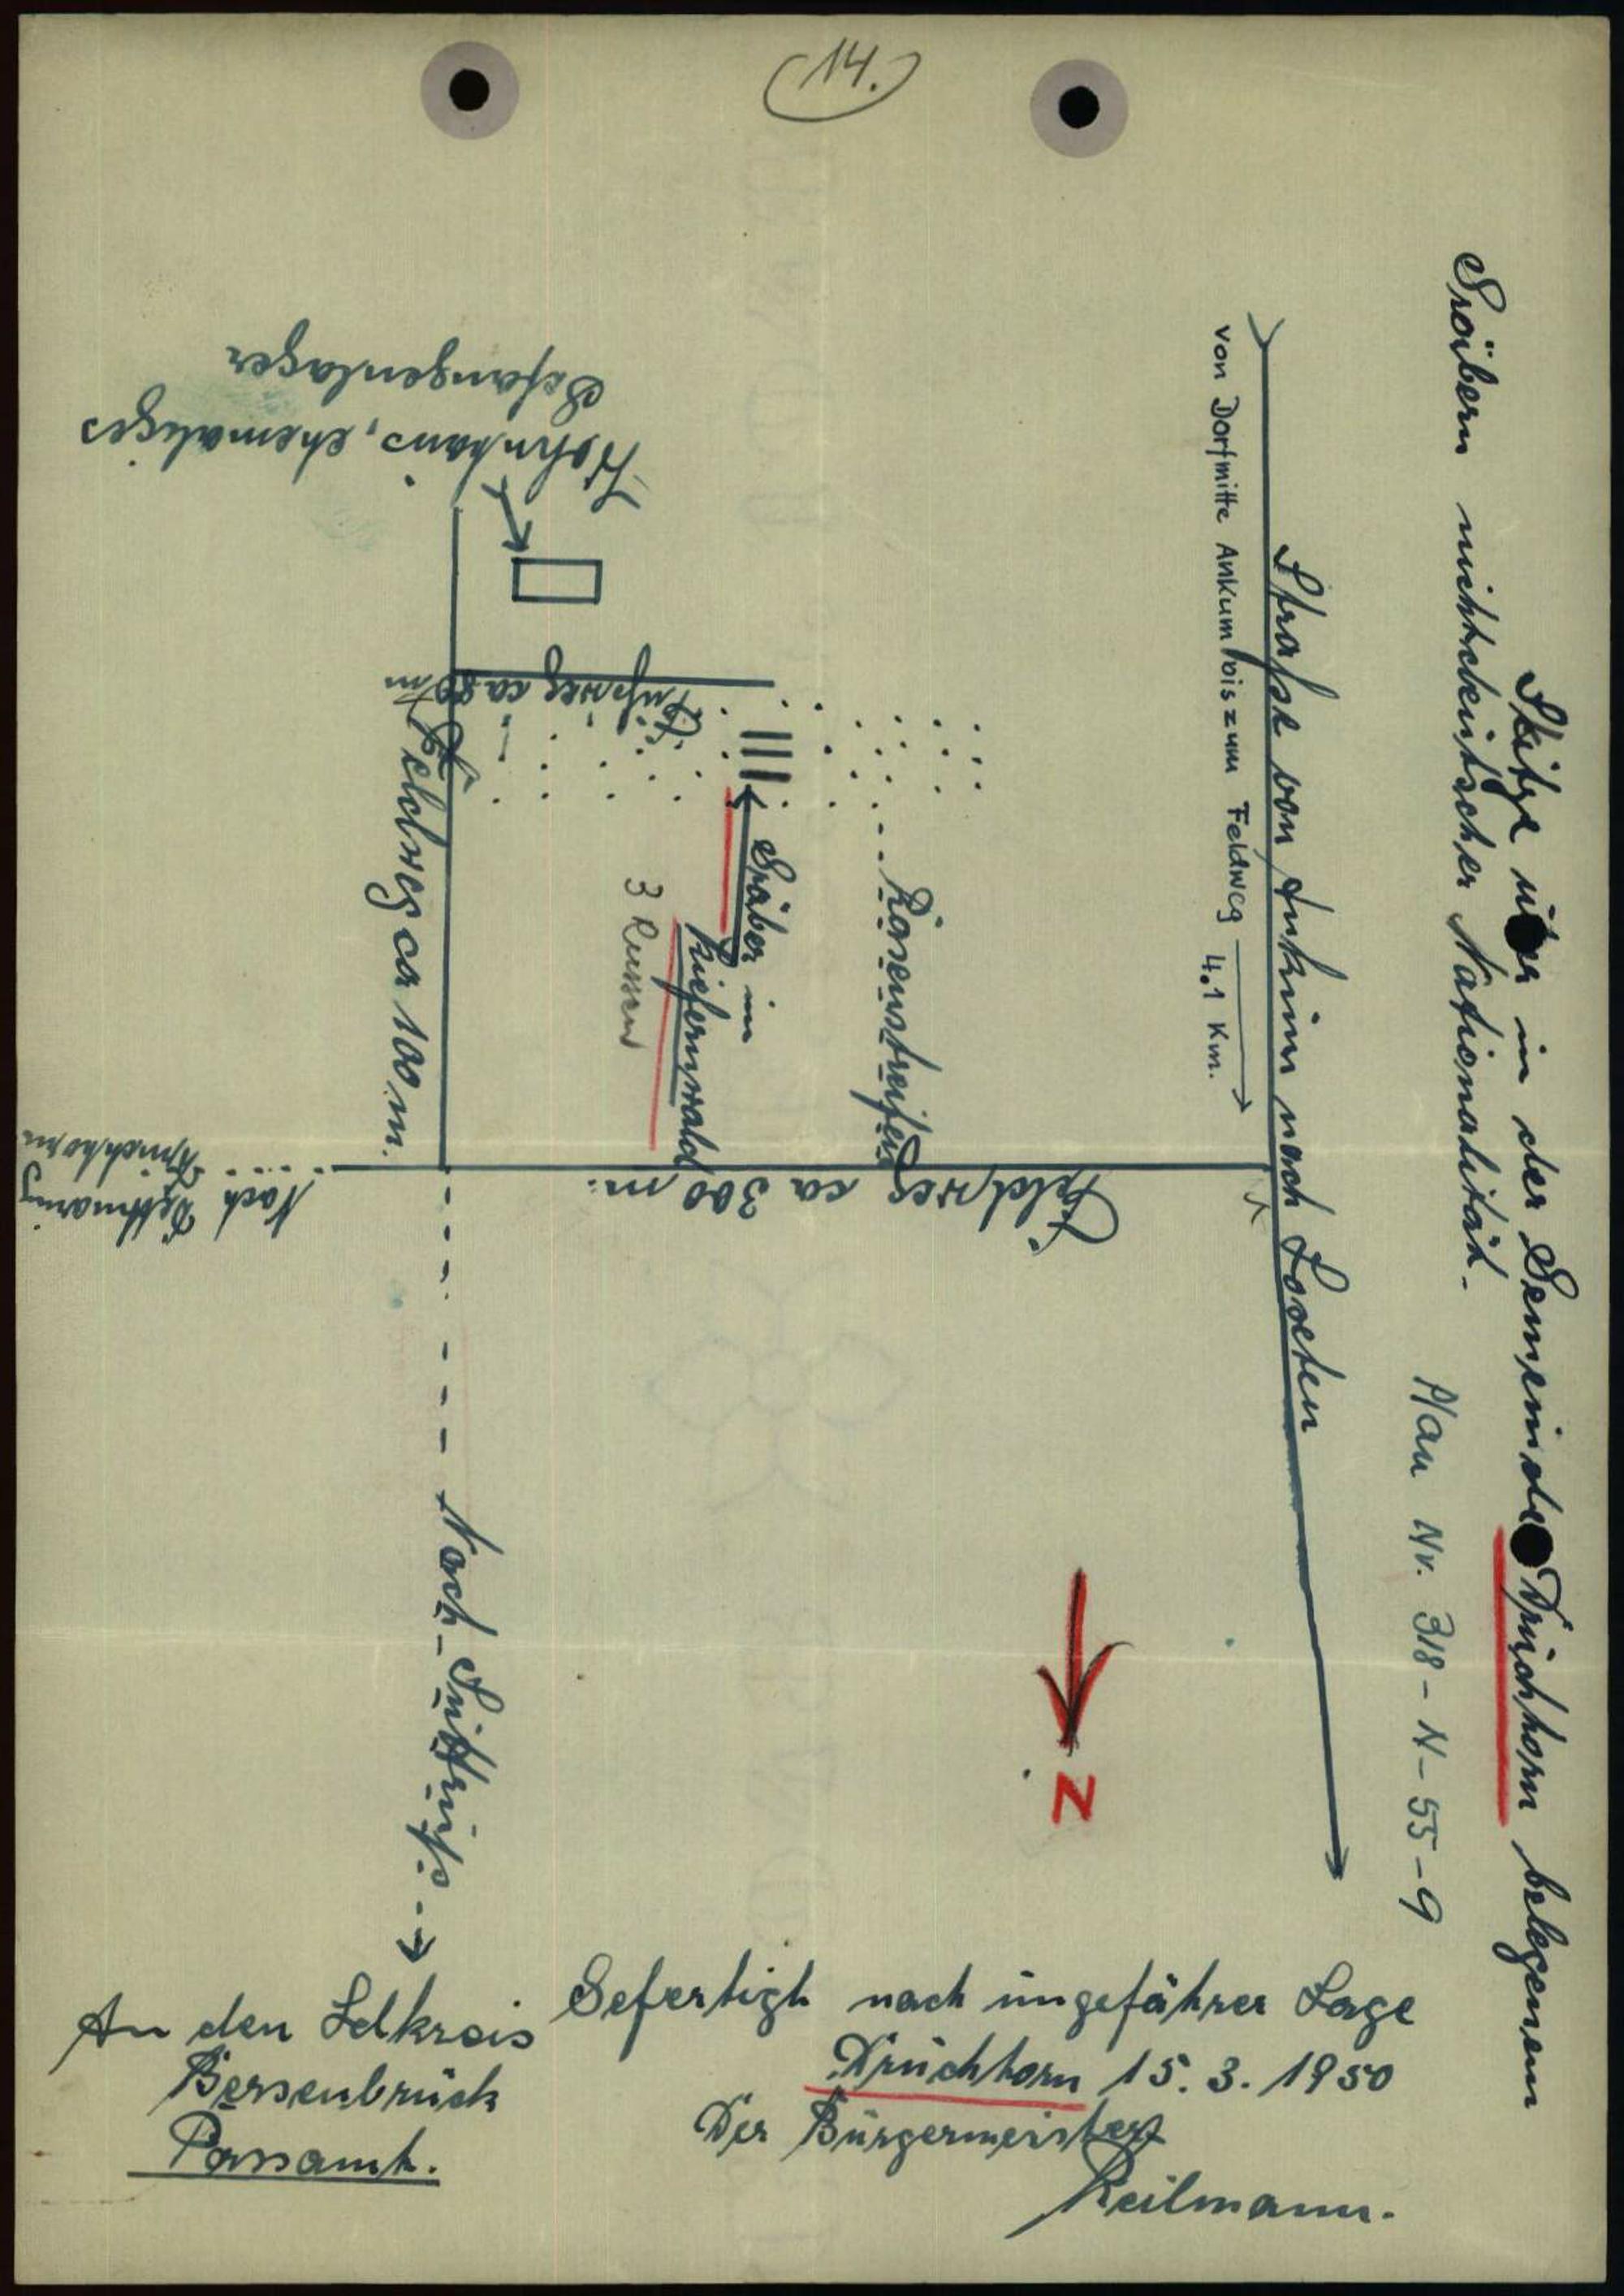 14.
Skitze über in der Gemeinde Drüchhorn belegenem
Gräbern nichtdeutscher Nationalität.
Plan Nr. 318-N-55-9
Straße von Ankum nach Loxten
von Dorfmitte Ankum bis zum Feldweg 4.1 Km.
Wohnhaus, ehemaliges
Gefangenlager
Fußweg ca 80 m
Feldweg ca 100 m.
Gräber im
Kiefernwald
3 Russen
Rasenstreifen
Feldweg ca 300 m.
Nach Dettmaring
Drüchhorn
Nach Suttrup.
N
Gefertigt nach ungefährer Lage
Drüchhorn 15.3.1950
Der Bürgermeister
Reilmann.
An den Ldkreis
Bersenbrück
Passamt.